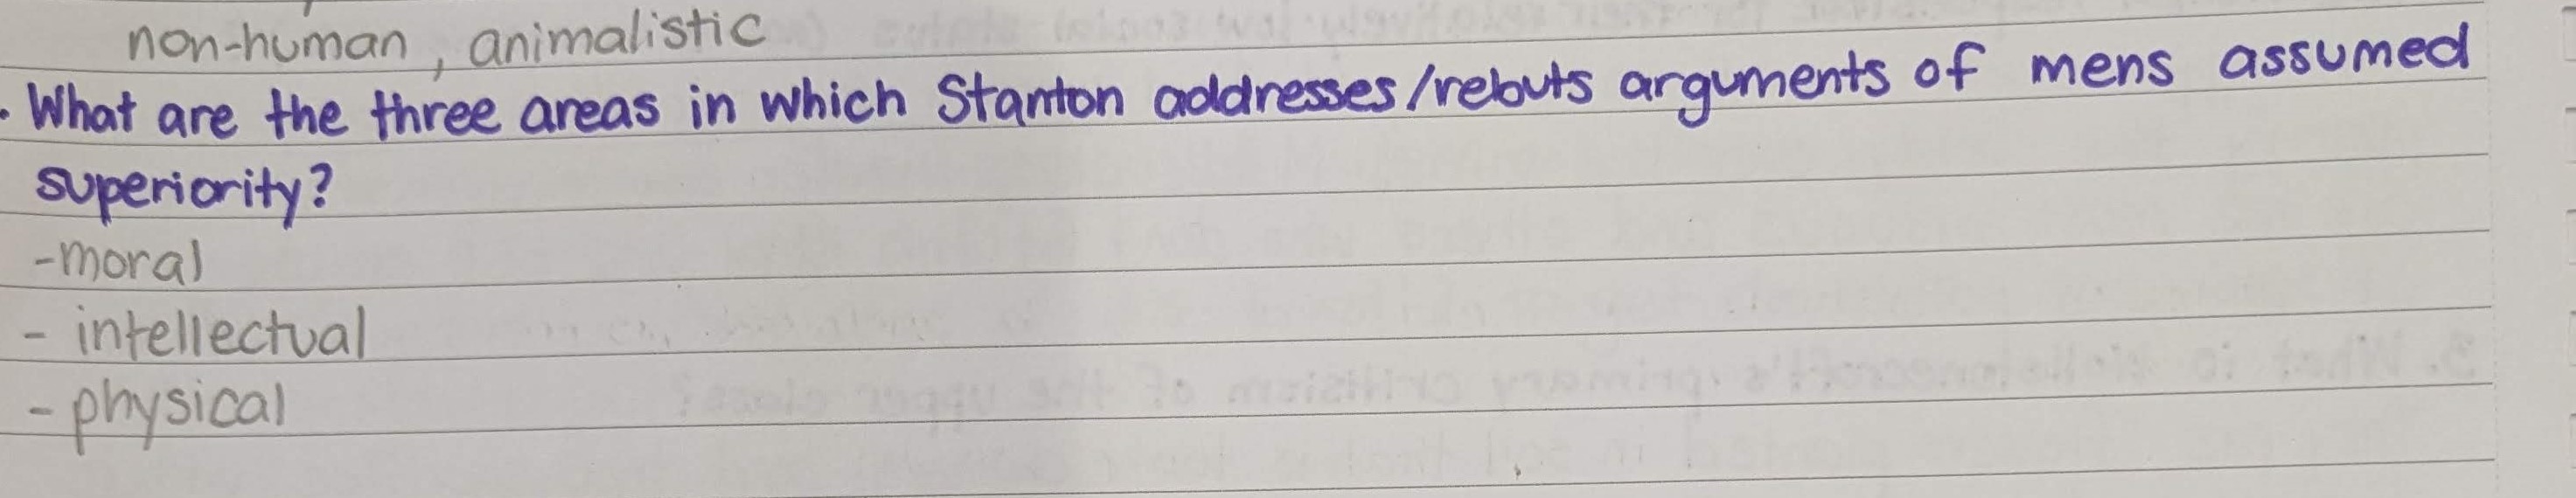 non-human, animalistic
. What are the three areas in which Stanton addresses/rebuts arguments of mens assumed
superiority?
-moral
- intellectual
- physical